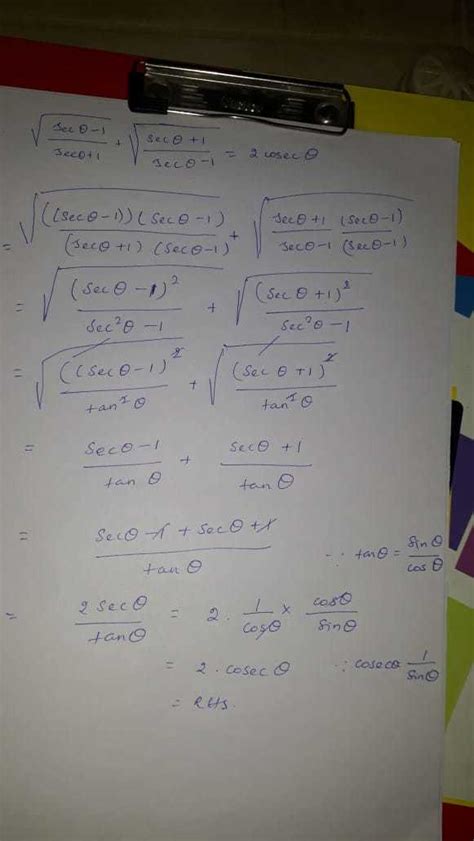 √((secθ-1)/(secθ+1)) + √((secθ+1)/(secθ-1)) = 2 cosecθ
= √(((secθ-1))(secθ-1)/(secθ+1)(secθ-1)) + √((secθ+1)/(secθ-1) (secθ-1)/(secθ-1))
= √((secθ-1)²/(sec²θ-1)) + √((secθ+1)²/(sec²θ-1))
= √(((secθ-1)²/tan²θ) + √((secθ+1)²/tan²θ)
= (secθ-1)/tanθ + (secθ+1)/tanθ
= (secθ-1+secθ+1)/tanθ ∵ tanθ = sinθ/cosθ
= 2secθ/tanθ = 2 · 1/cosθ × cosθ/sinθ
= 2 · cosecθ ∵ cosecθ = 1/sinθ
= RHS.